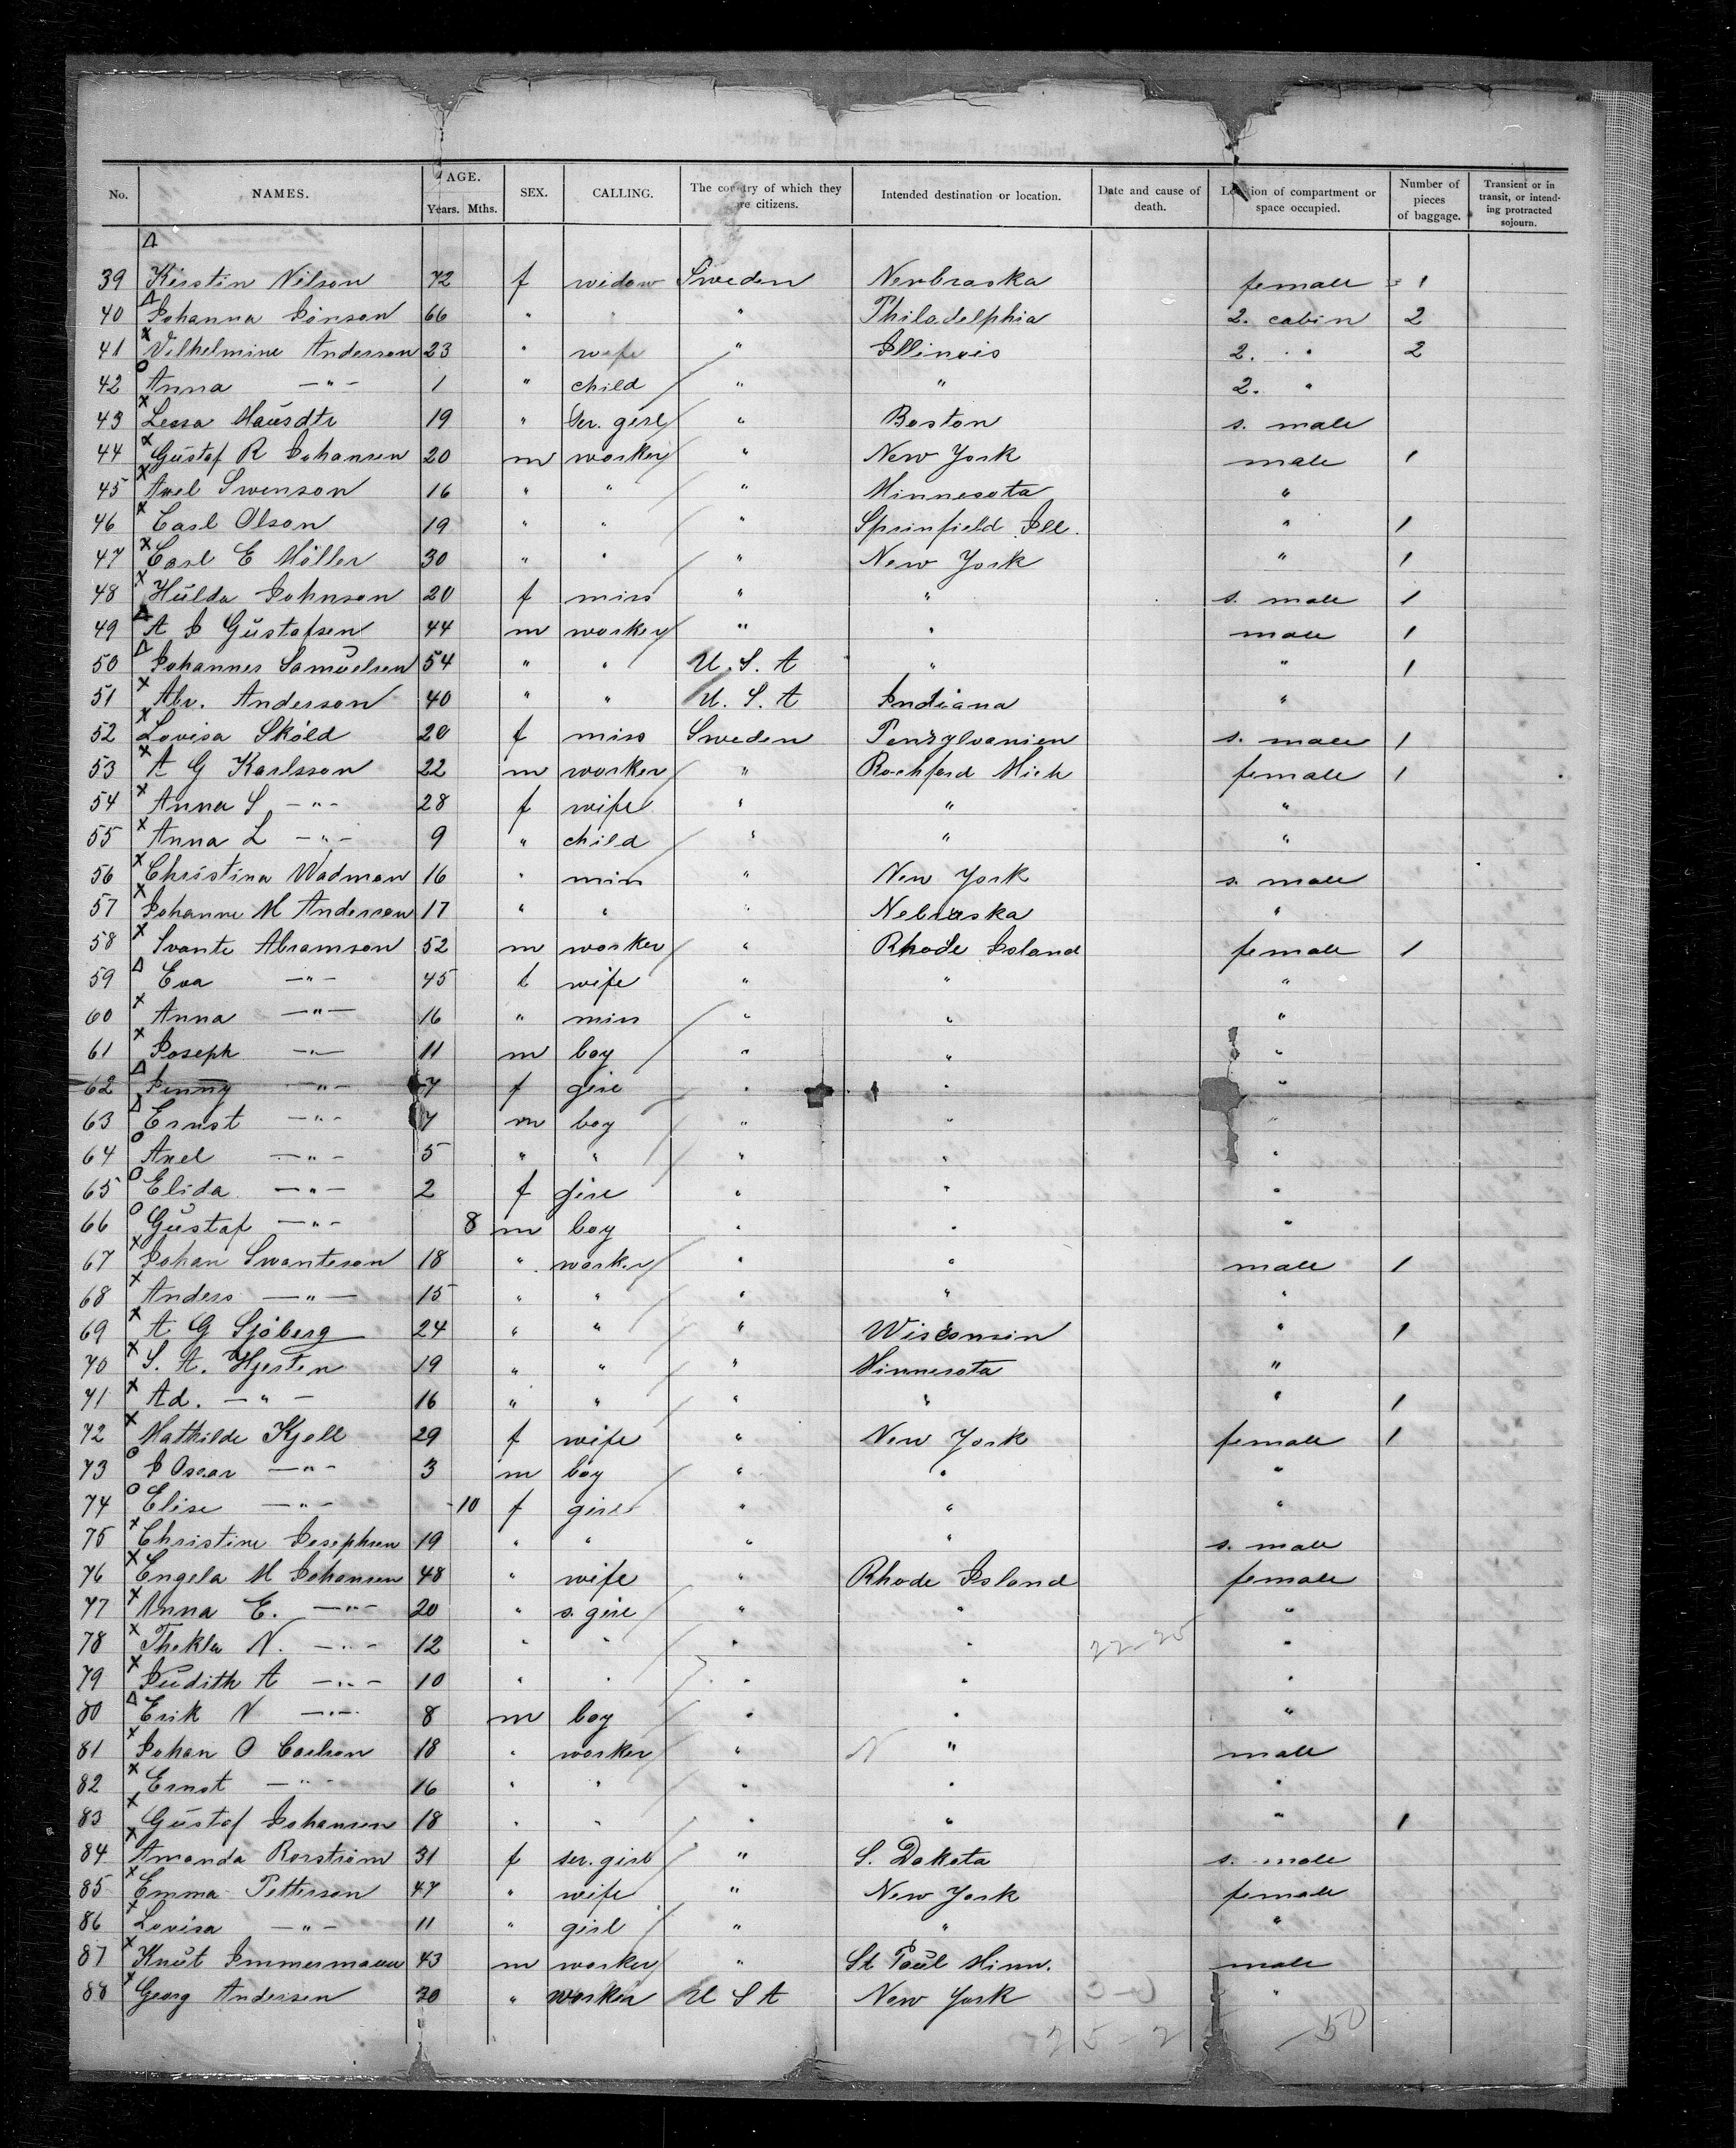 No. NAMES. AGE. Years. Mths. SEX. CALLING. The country of which they are citizens. Intended destination or location. Date and cause of death. Location of compartment or space occupied. Number of pieces of baggage. Transient or in transit, or intending protracted sojourn.
Δ
39 Kerstin Nilson 72 f widow Sweden Newbraska female 1
40 Δ Johanna Jönson 66 " " " Philadelphia 2. cabin 2
41 x Vilhelmine Anderson 23 " wife " Illinois 2. " 2
42 o Anna —"— 1 " child " " 2. "
43 x 19 " Ser. girl " Boston s. male
44 x Gustaf R Johansen 20 m worker " New York male 1
45 x Axel Swenson 16 " " " Minnesota "
46 x Carl Olson 19 " " " Sprinfield Ill. " 1
47 x Carl E Möller 30 " " " New York " 1
48 x Hulda Johnson 20 f miss " " s. male 1
49 Δ A J Gustafsen 44 m worker " " male 1
50 Δ Johannes Samuelsen 54 " " U. S. A " " 1
51 x Alv. Anderson 40 " " U. S. A Indiana "
52 x Lovisa Sköld 20 f miss Sweden Pensylvanien s. male 1
53 x A G Karlsson 22 m worker " Rochford Mich female 1
54 x Anna S —"— 28 f wife " " "
55 x Anna L —"— 9 " child " " "
56 x Christina Wadman 16 " miss " New York s. male
57 x Johanne M Anderson 17 " " " Nebraska "
58 x Svante Abramson 52 m worker " Rhode Island female 1
59 Δ Eva —"— 45 f wife " " "
60 x Anna —"— 16 " miss " " "
61 x Joseph —"— 11 m boy " " "
62 Δ Jenny —"— 7 f girl " " "
63 Δ Ernst —"— 7 m boy " " "
64 o Axel —"— 5 " " " " "
65 o Elida —"— 2 f girl " " "
66 o Gustaf —"— 8 m boy " " "
67 x Johan Swanteson 18 " worker " " male 1
68 x Anders —"— 15 " " " " "
69 x A G Sjöberg 24 " " " Wisconsin " 1
70 x S. A. Hjerten 19 " " " Minnesota "
71 x Ad. —"— 16 " " " " " 1
72 x Mathilde Kjell 29 f wife " New York female 1
73 o J Oscar —"— 3 m boy " " "
74 o Elise —"— 10 f girl " " "
75 x Christine Josephsen 19 " " " " s. male
76 x Engela M Johansen 48 " wife " Rhode Island female
77 x Anna E. —"— 20 " s. girl " " "
78 x Thekla N. —"— 12 " " " " 22-25 "
79 x Judith A —"— 10 " " " " "
80 Δ Erik N —"— 8 m boy " " "
81 x Johan O Carlson 18 " worker " N " male
82 x Ernst —"— 16 " " " " "
83 x Gustaf Johansen 18 " " " " " 1
84 x Amanda Rorström 31 f ser. girl " S. Dakota s. male
85 x Emma Petterson 47 " wife " New York female
86 x Lovisa —"— 11 " girl " " "
87 x Knut Immermann 43 m worker " St Paul Minn. male
88 x Georg Andersen 30 " worker U S A New York "
50